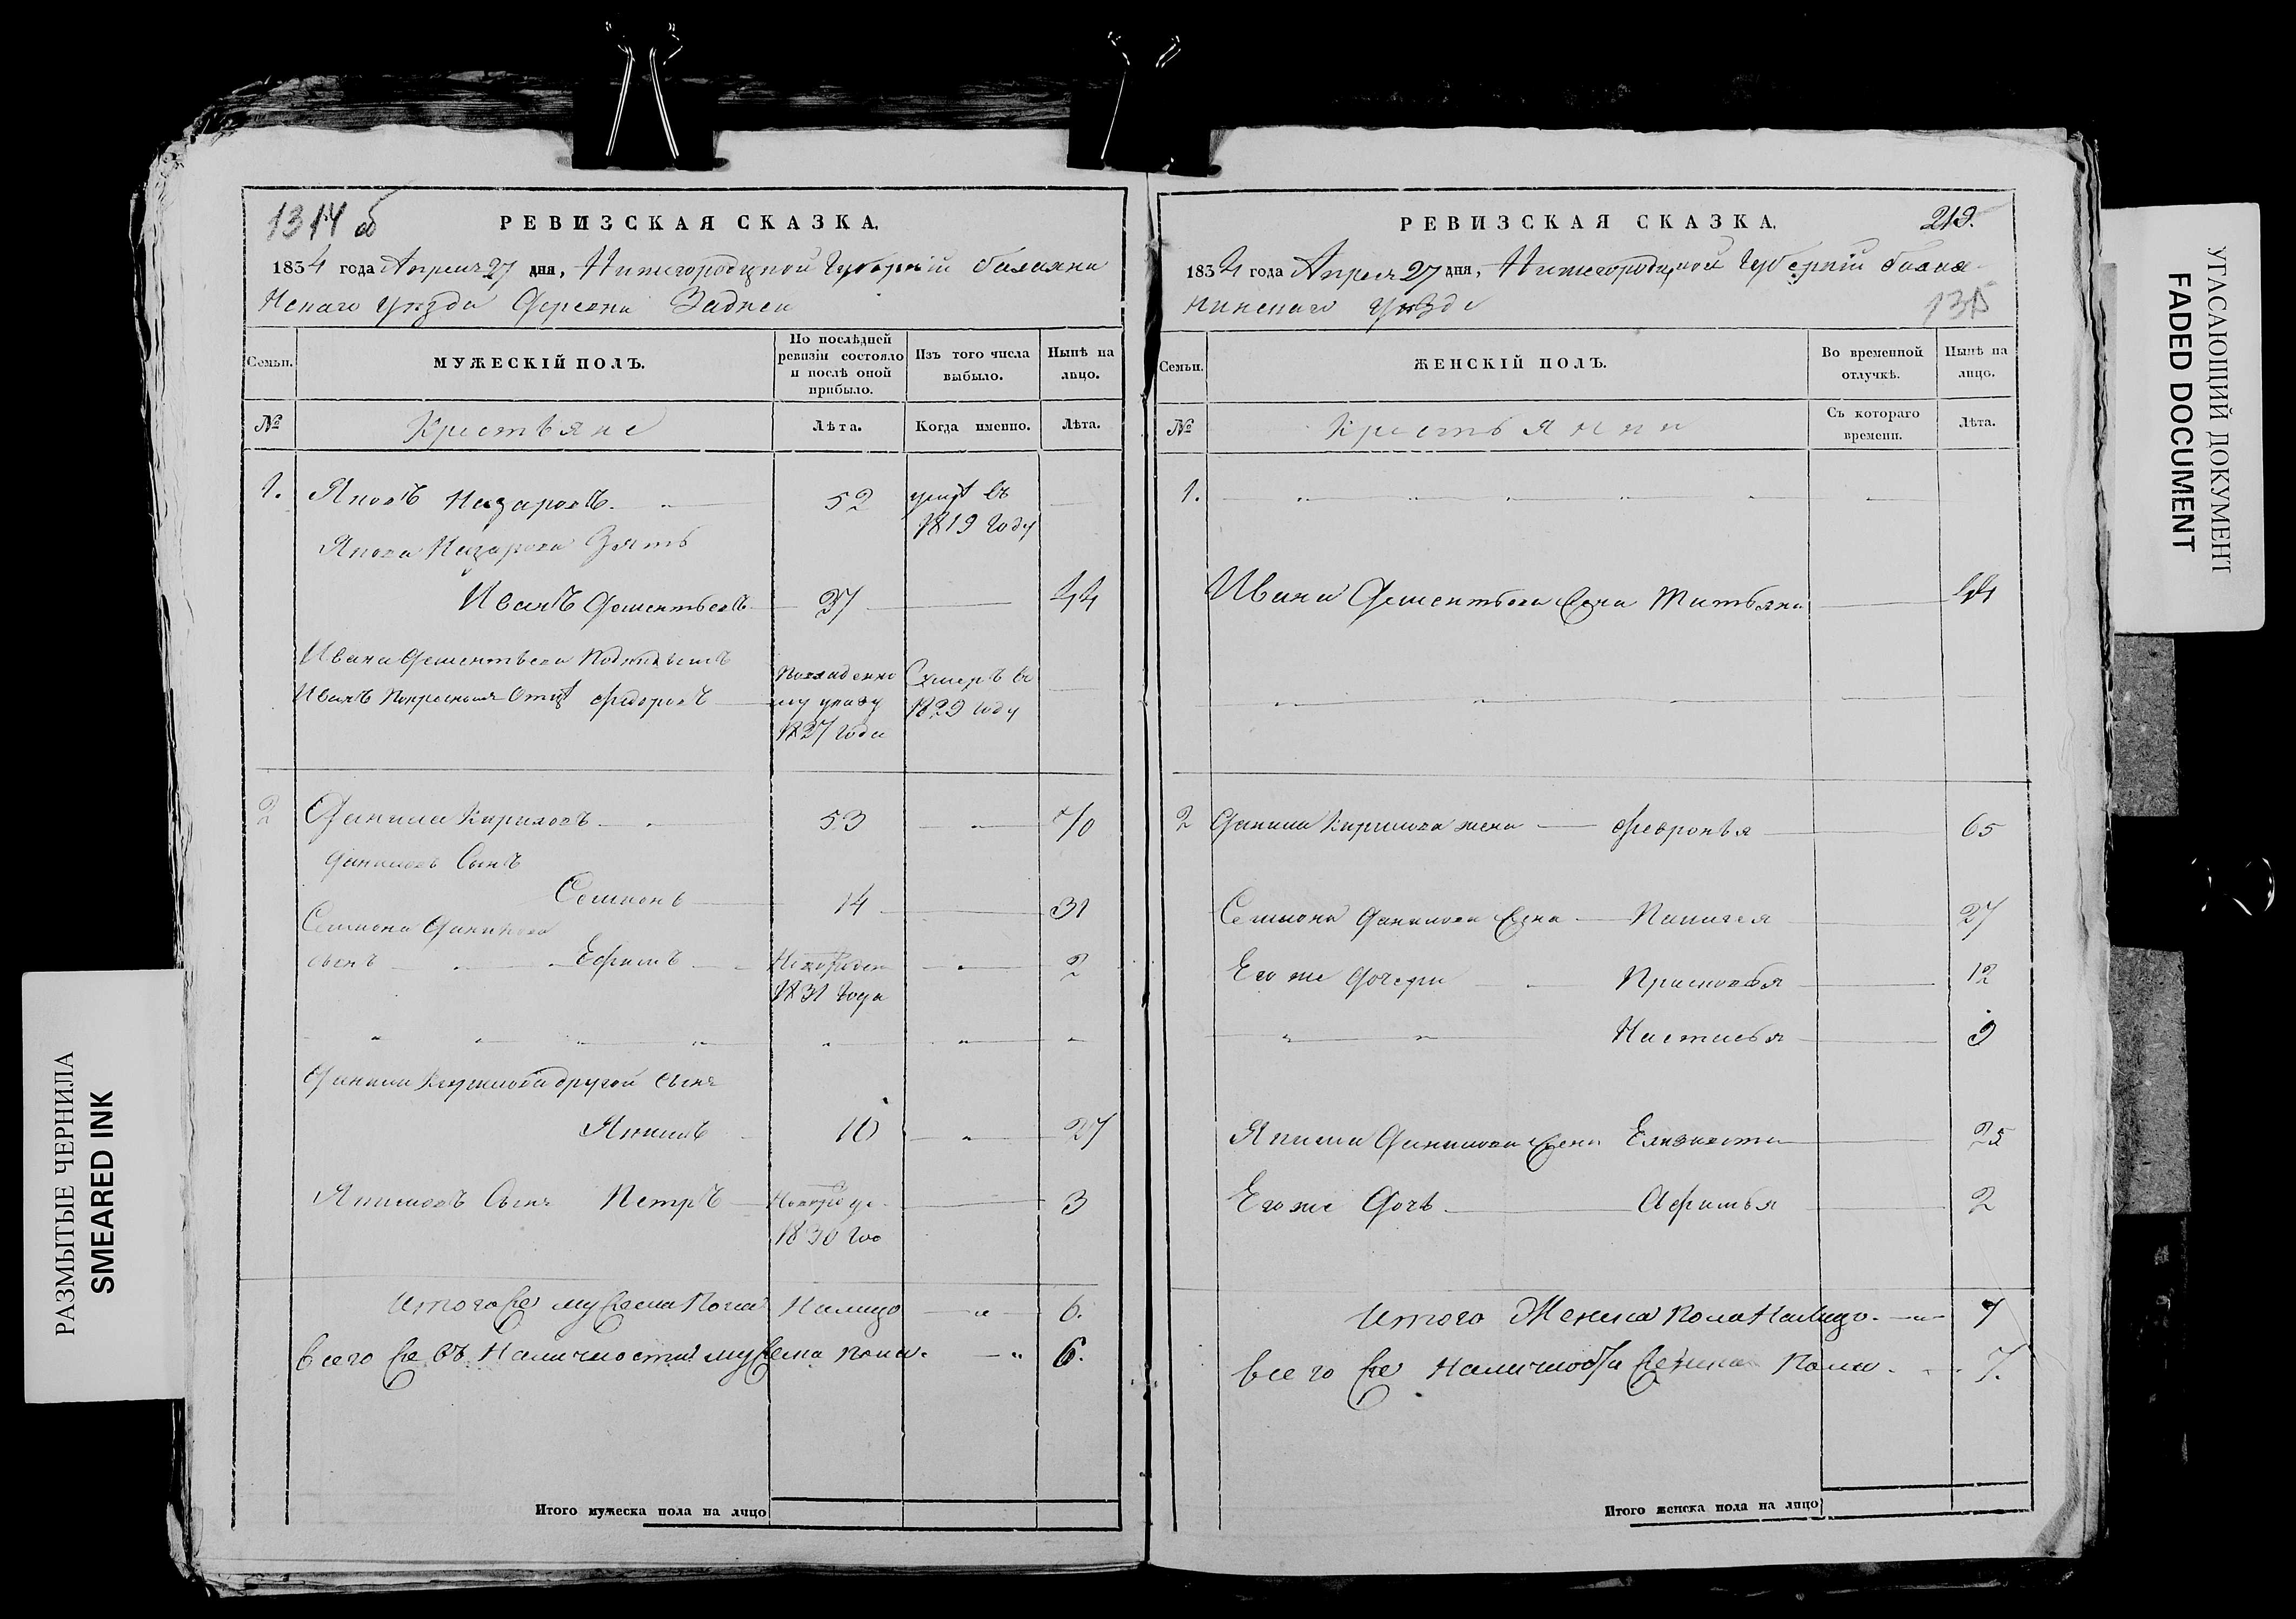 1314 об
РЕВИЗСКАЯ СКАЗКА.
1834 года Апреля 27 дня, Нижегородцкой Губернiи балахни
нскаго уезда Деревни Задней
Семьи.
МУЖЕСКІЙ ПОЛЪ.
По послѣдней ревизіи состояло и послѣ оной прибыло.
Изъ того числа выбыло.
Нынѣ на лицо.
№
Крестьяне
Лѣта.
Когда именно.
Лѣта.
1. Яковъ Назаровъ. 52 въ
1819 году
Якова Назарова Зять
Иванъ Дементьевъ 37 44
Ивана Дементьева
Иванъ Отцу Федоровъ указу
1827 года
Умеръ въ
1829 году
2 Данила Кириловъ 53 70
Даниловъ Сынъ
Семионъ 14 31
Семиона Данилова
сынъ Ефимъ 2
1831 года
Данила Кирилова другой сынъ
Якимъ 10 27
Якимовъ Сынъ Петръ 3
1830 го
Итого же мужеска пола Налицо 6.
Всего же въ Наличности мужеска пола. 6.
Итого мужеска пола на лицо
РЕВИЗСКАЯ СКАЗКА.
219.
1834 года Апреля 27 дня, Нижегородцкой Губернiи балах
нинскаго уезда
135
Семьи.
ЖЕНСКІЙ ПОЛЪ.
Во временной отлучкѣ.
Нынѣ на лицо.
№
Крестьянки
Съ котораго времени.
Лѣта.
1.
Ивана Дементьева жена Татьяна 44
2 Данила Кирилова жена Февронья 65
Семиона Данилова жена Пелагея 27
Его же дочери Прасковья 12
Настасья 9
Якима Данилова жена Елизавета 25
Его же Дочь Афимья 2
Итого Женска пола Налицо. 7
Всего же женска Пола. 7.
Итого женска пола на лицо
УГАСАЮЩИЙ ДОКУМЕНТ
FADED DOCUMENT
РАЗМЫТЫЕ ЧЕРНИЛА
SMEARED INK